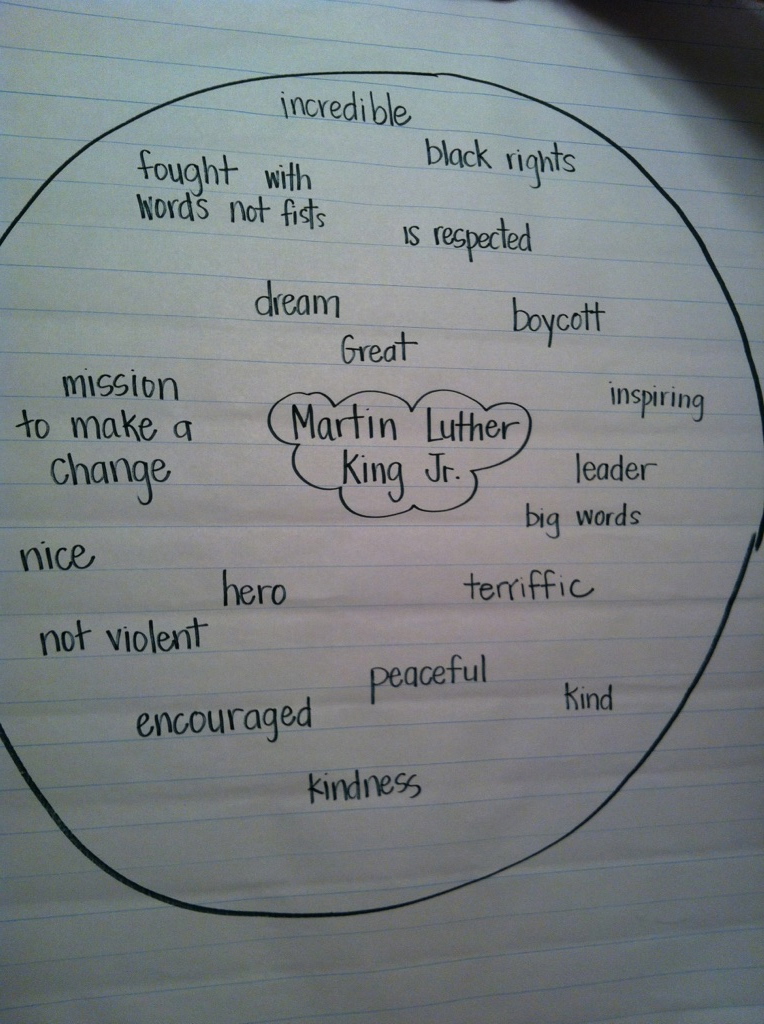 incredible
black rights
fought with
words not fists
is respected
dream
boycott
Great
mission
to make a
change
inspiring
Martin Luther
King Jr.
leader
big words
nice
hero
terriffic
not violent
peaceful
kind
encouraged
kindness